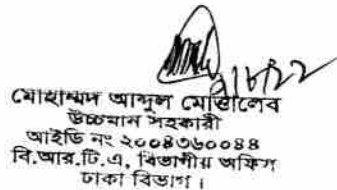 ২১৮/২২
মোহাম্মদ আব্দুল মোত্তালেব
উচ্চমান সহকারী
আইডি নং ২০০৪৩৬০০৪৪
বি.আর.টি.এ, বিভাগীয় অফিস
ঢাকা বিভাগ।